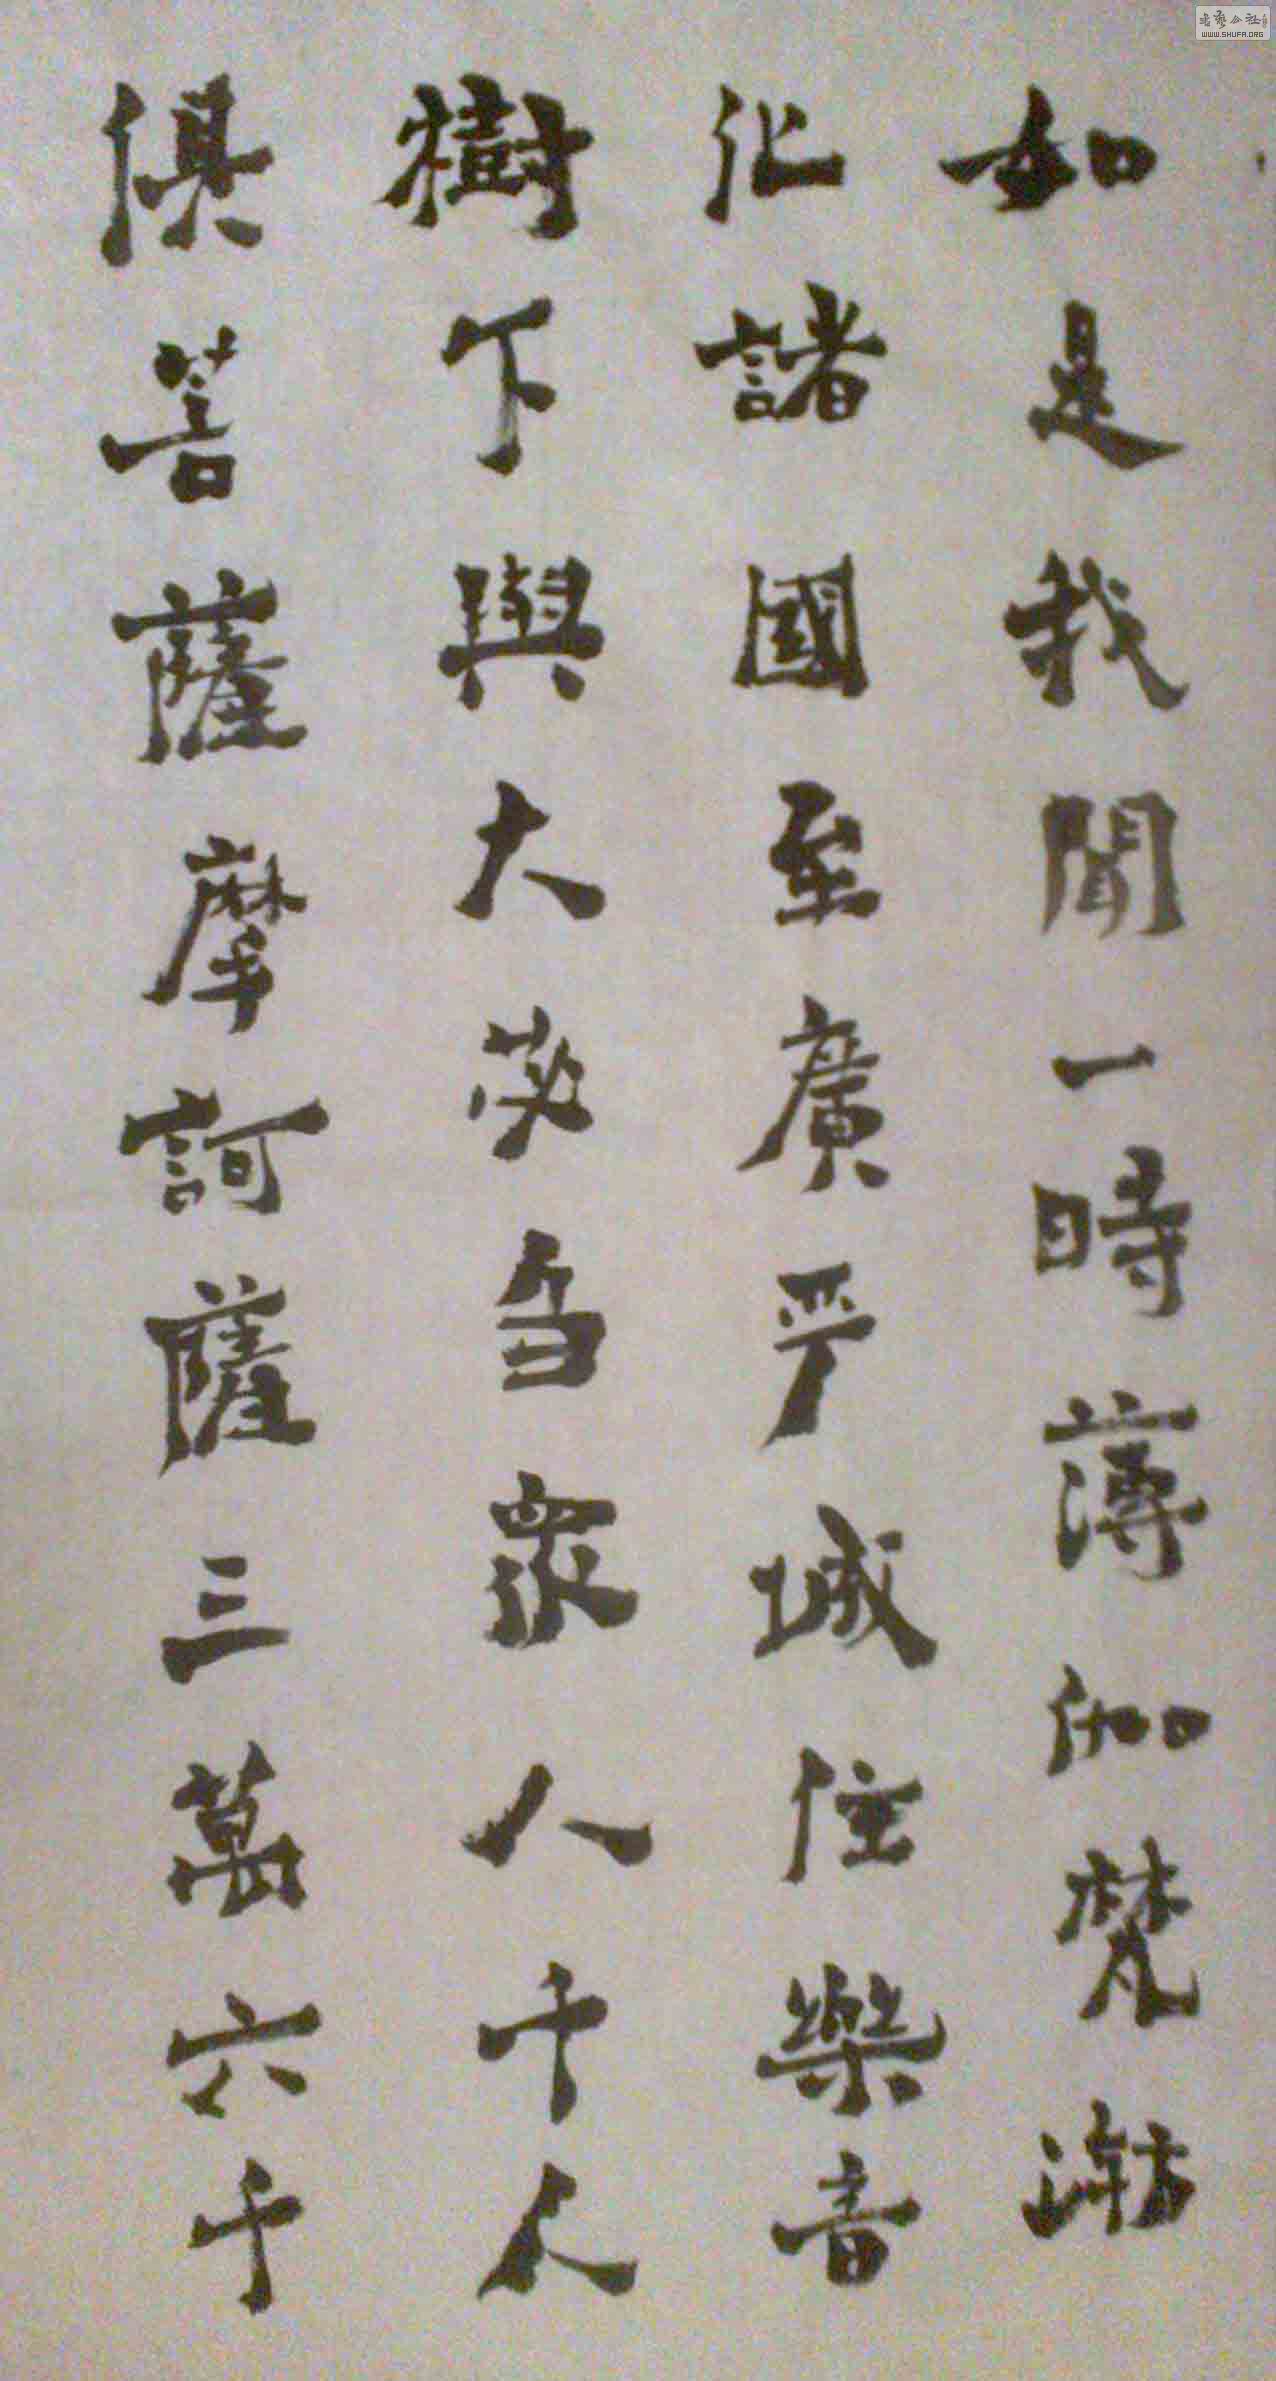 如是我聞一時薄伽梵游
化諸國至廣严城住樂音
樹下與大苾芻眾八千人
俱菩薩摩訶薩三萬六千
书艺公社
WWW.SHUFA.ORG